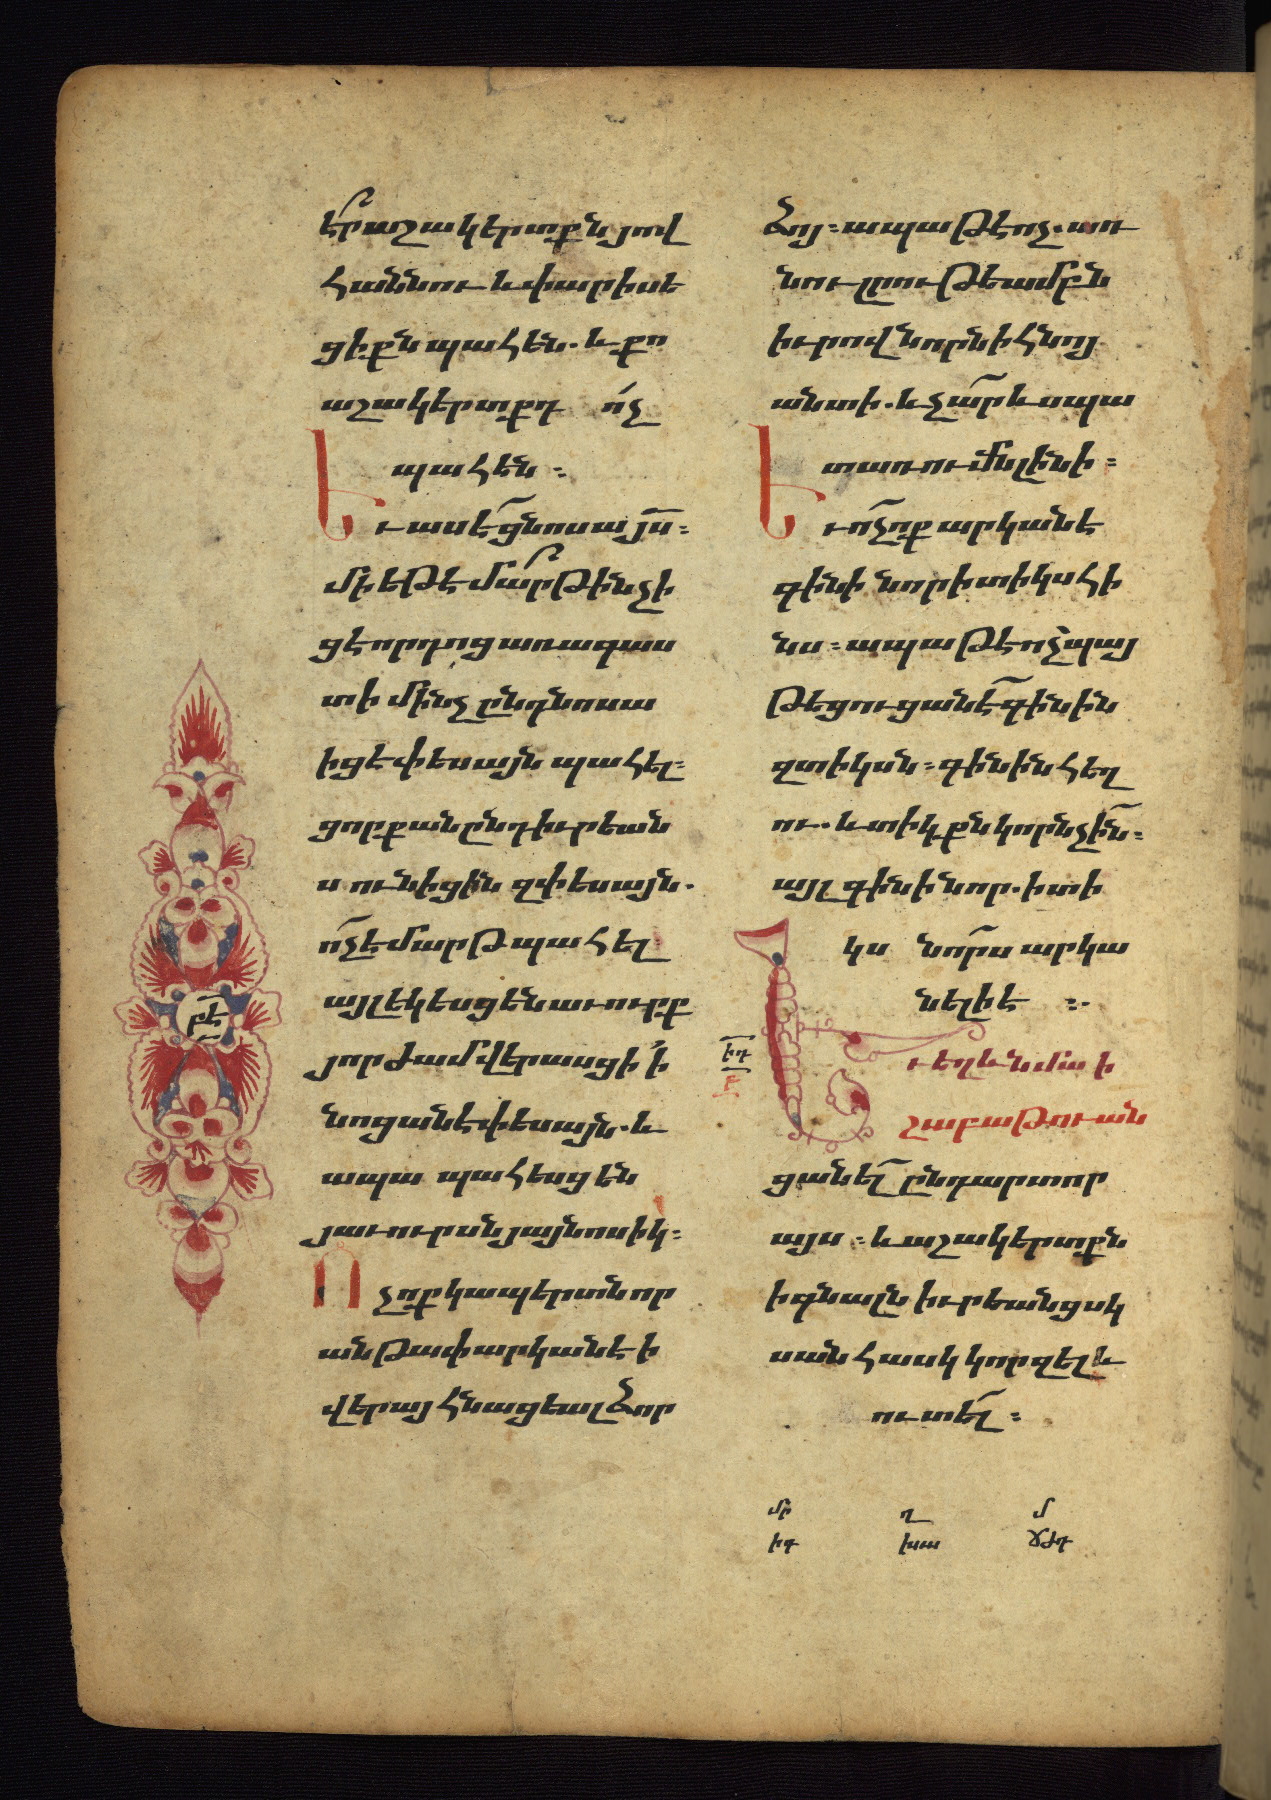 է՞ր աշակերտքն յով
հաննու և փարիսե
ցիքն պահեն. և քո
աշակերտքդ ո՛չ
պահեն։
Եւ ասէ ցնոսա յս։
մի եթէ մա՞րթ ինչ ի
ցէ որդոց առագաս
տի մինչ ընդ նոսա
իցէ փեսայն պահել։
ցորքան ընդ իւրեան
ս ունիցին զփեսայն.
ոչ է մարթ պահել
այլ եկեսցեն աւուրք
յորժամ վերասցի ի
նոցանէ փեսայն. և
ապա պահեսցեն
յաւուրսն յայնոսիկ։
Ոչ ոք կապերտ նոր
անթափ արկանէ ի
վերայ հնացեալ ձոր
ձոյ։ ապա թէ ոչ. առ
նու լրութեամբն
իւրով նորն ի հնոյ
անտի. և չար ևս պա
տառումն լինի։
Եւ ոչ ոք արկանէ
գինի նոր ի տիկս հի
նս։ ապա թէ ոչ պայ
թեցուցանէ գինին
զտիկսն։ գինին հեղ
ու. և տիկքն կորնչին։
այլ գինի նոր. ի տի
կս նորս արկա
նելի է ։
Եւ եղև նմա ի
շաբաթու ան
ցանել ընդ արտոր
այս։ և աշակերտքն
ի գնալն իւրեանց սկ
սան հասկ կորզել և
ուտել։
բե
իդ
բ
մի ղ մ
իգ իսա ՃԺԴ